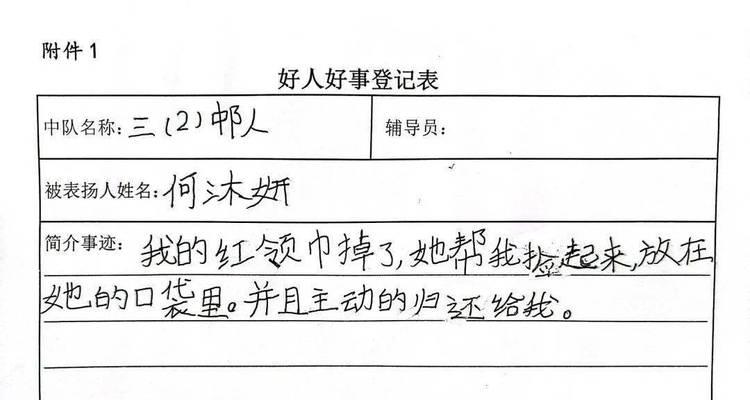 附件1
好人好事登记表
中队名称：三（2）中队 辅导员：
被表扬人姓名：何沐妍
简介事迹：我的红领巾掉了，她帮我捡起来，放在
她的口袋里。并且主动的归还给我。